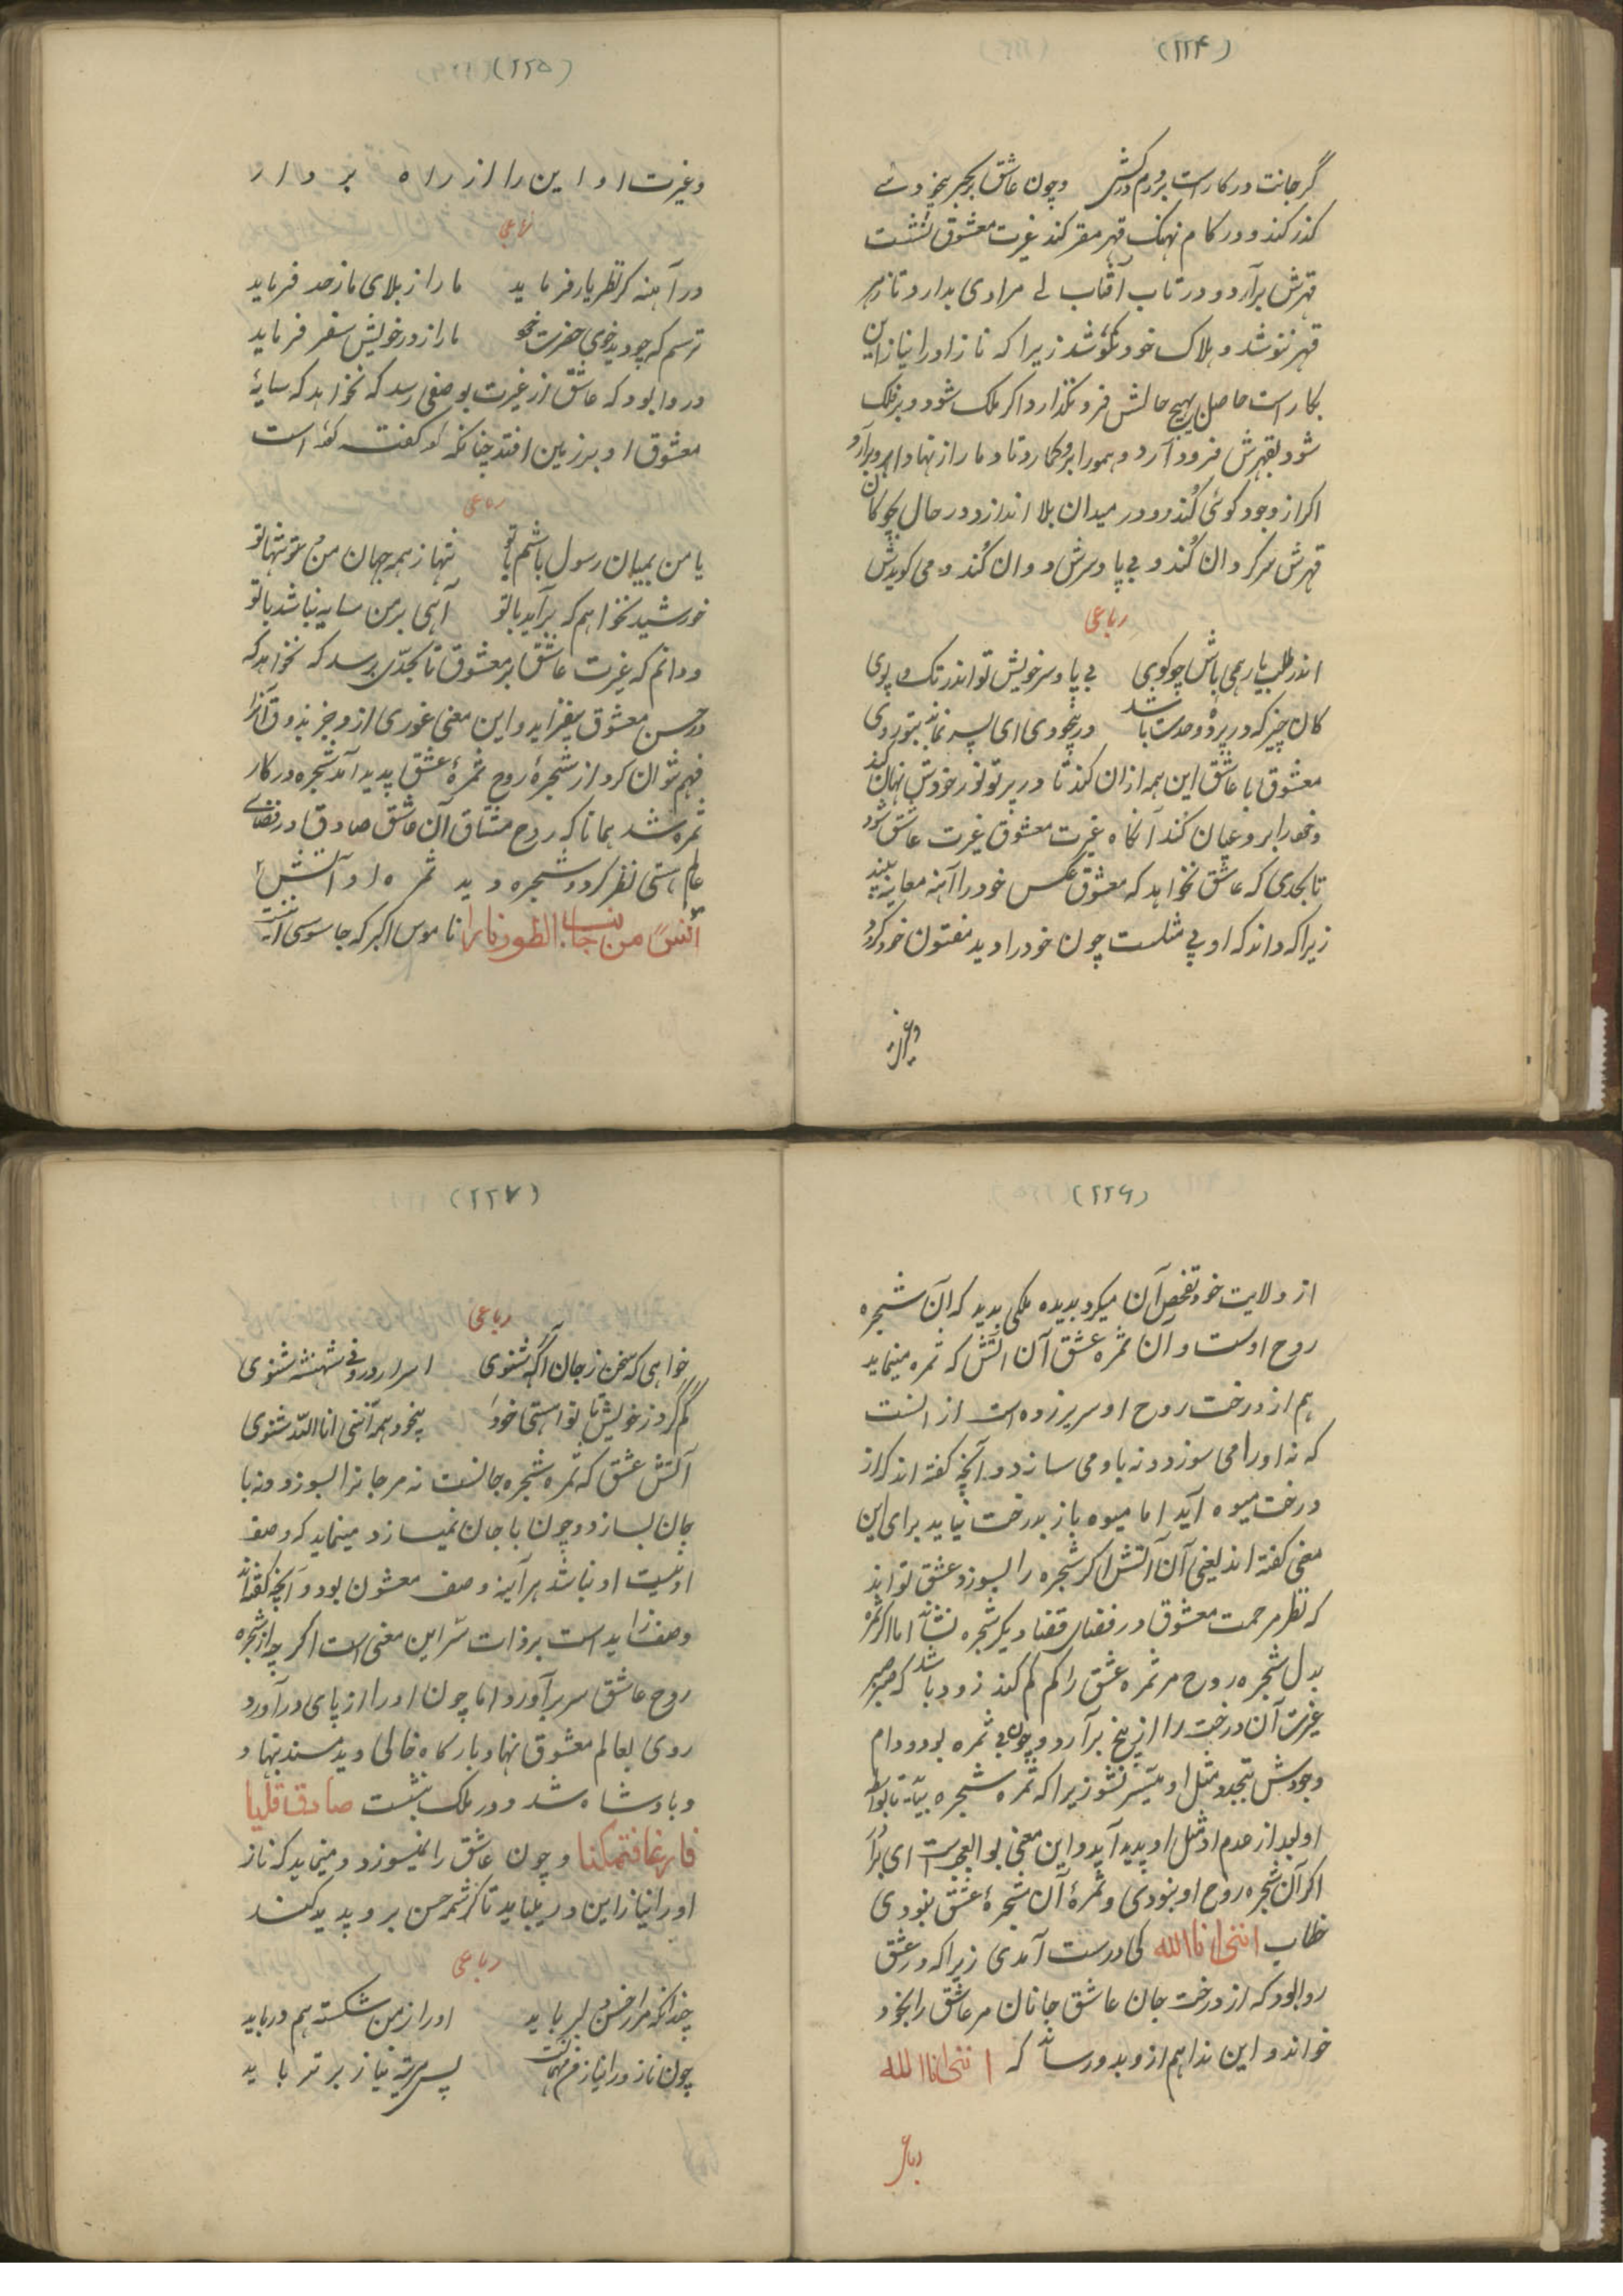 (۲۲۴)
گر جانت در کار است بر و دم در کش وچون عاشق بر بحر بیخودی
گذر کند و در کام نهنگ قهر مقر کند غیرت معشوق نشئت
قهرش برآرد و در تاب آفتاب بی مرادی بدارد تا زهر
قهر ننوشد و هلاک خود نکوشد زیرا که ناز او را نیاز این
بکار است حاصل بهیچ حالش فرو نگذارد اگر ملک شود و بر فلک
شود بقهرش فرود آرد و همو را برو گمارد تا دمار از نهاد او برآرد
اگر از وجود گوئی کُند و در میدان بلا اندازد در حال چوگان
قهرش سرگردان کُند و بی پا و سرش دوان کُند و می گویدش
رباعی
اندر طلب یار همی باش چو گوی بی پا و سر خویش تو اندر تک و پوی
کان چیز که در پردهٔ وحدت باشد در بیخودی ای پسر نماید بتو روی
معشوق با عاشق این همه ازان کند تا در پرتو نور خودش نهان کند
و خود را برو عیان کُند آنگاه غیرت معشوق غیرت عاشق شود
تا بحدی که عاشق نخواهد که معشوق عکس خود را در آینه معاینه بیند
زیرا که داند که او بی مثلست چون خود را دید مفتون خود گردد
وغیرت
(۲۲۵)
وغیرت او این را از راه بر دارد
رباعی
در آینه گر نظر یار فرماید ما را ز بلای ما زحد فرماید
ترسم که چو دید خوبی حضرت خود ما را ز در خویش سفر فرماید
و روا بود که عاشق از غیرت بوصفی رسد که نخواهد که سایهٔ
معشوق او بر زمین افتد چنانکه گوینده گفته است
رباعی
یا من بمیان رسول باشم یا تو تنها ز همه جهان من و تنها تو
خورشید نخواهم که برآید با تو آیی بر من سایه نباشد با تو
و دانم که غیرت عاشق بر معشوق تا بحدّی برسد که نخواهد که
در حسن معشوق بیفزاید و این معنی غوری دارد جز بذوق آنرا
فهم نتوان کرد از شجرهٔ روح ثمرهٔ عشق پدید آمد شجره در کار
ثمره شد همانا که روح مشتاق آن عاشق صادق در فضای
عالم هستی نظر کرد و شجره دید ثمره او آتش
آنس من جانب الطور نارا ناموس اکبر که جاسوسی است
(۲۲۶)
از ولایت خود تفحص آن میکرد بدیده ملکی بدید که آن شجره
روح اوست و آن ثمره عشق آن آتش که ثمره مینماید
هم از درخت روح او سر بر زده است از انست
که نه او را می سوزد و نه با و می سازد و آنچه گفته اند که از
درخت میوه آید اما میوه باز بدرخت نیاید برای این
معنی گفته اند یعنی آن آتش اگر شجره را بسوزد عشق تواند
که نظر مرحمت معشوق در فضای قضا دیگر شجره نشاند اما اگر ثمره
بدل شجره روح مر ثمره عشق را کم کم کند زود باشد که صرصر
غیرت آن درخت را از بیخ برآرد و چون بی ثمره بود دوام
وجودش بتجدد مثل او میسر نشود زیرا که ثمره شجره بباید تا بواسطه
او بعد از عدم او مثل او پدید آید و این معنی بوالعجبست ای برادر
اگر آن شجره روح او نبودی و ثمرهٔ آن شجرهٔ عشق نبودی
خطاب اننی انا الله کی درست آمدی زیرا که در عشق
روا بود که از درخت جان عاشق جانان مر عاشق را بخود
خواند و این ندا هم از و بدو رساند که اننی انا الله
رباعی
(۲۲۷)
رباعی
خواهی که سخن ز جان آگه شنوی اسرار درونی شهنشه شنوی
گم گرد ز خویش تا تو از هستی خود بیخود همه اننی انا اللّه شنوی
آتش عشق که ثمره شجره جانست نه مر جانرا بسوزد و نه با
جان بسازد و چون با جان نمیسازد مینماید که وصف
او نیست او نباشد هر آینه وصف معشوق بود و آنچه گفته اند
وصف زاید است بر ذات سّر این معنی است اگر چه از شجره
روح عاشق سر برآورد اما چون او را از پای درآورد
روی بعالم معشوق نهاد بارگاه خالی دید مسند بنهاد
و بادشاه شد و در ملک بنشست صادق قلبا
فارغا فتمکنا و چون عاشق را نمیسوزد و مینماید که ناز
او را نیاز این در میباید تا کرشمه حسن برو پدید کند
رباعی
چندانکه مرا ز حسن او باید او را ز من شکسته هم درباید
چون ناز ورا نیاز من مهمانست پس مرتبه نیاز برتر باید